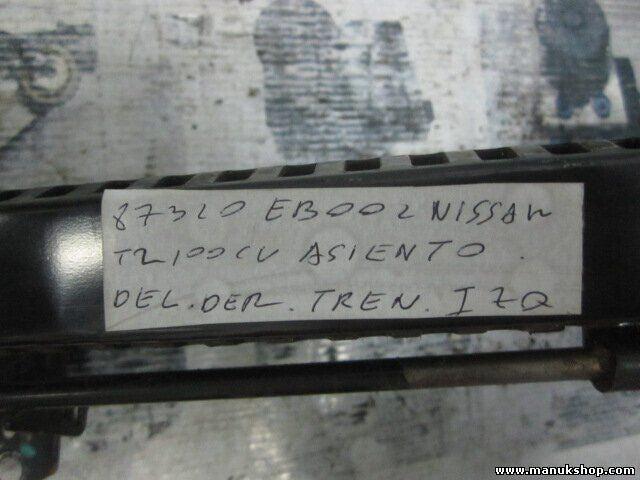 87320 EB002 NISSAN
T2 100CV ASIENTO.
DEL. DER. TREN. IZQ
www.manukshop.com